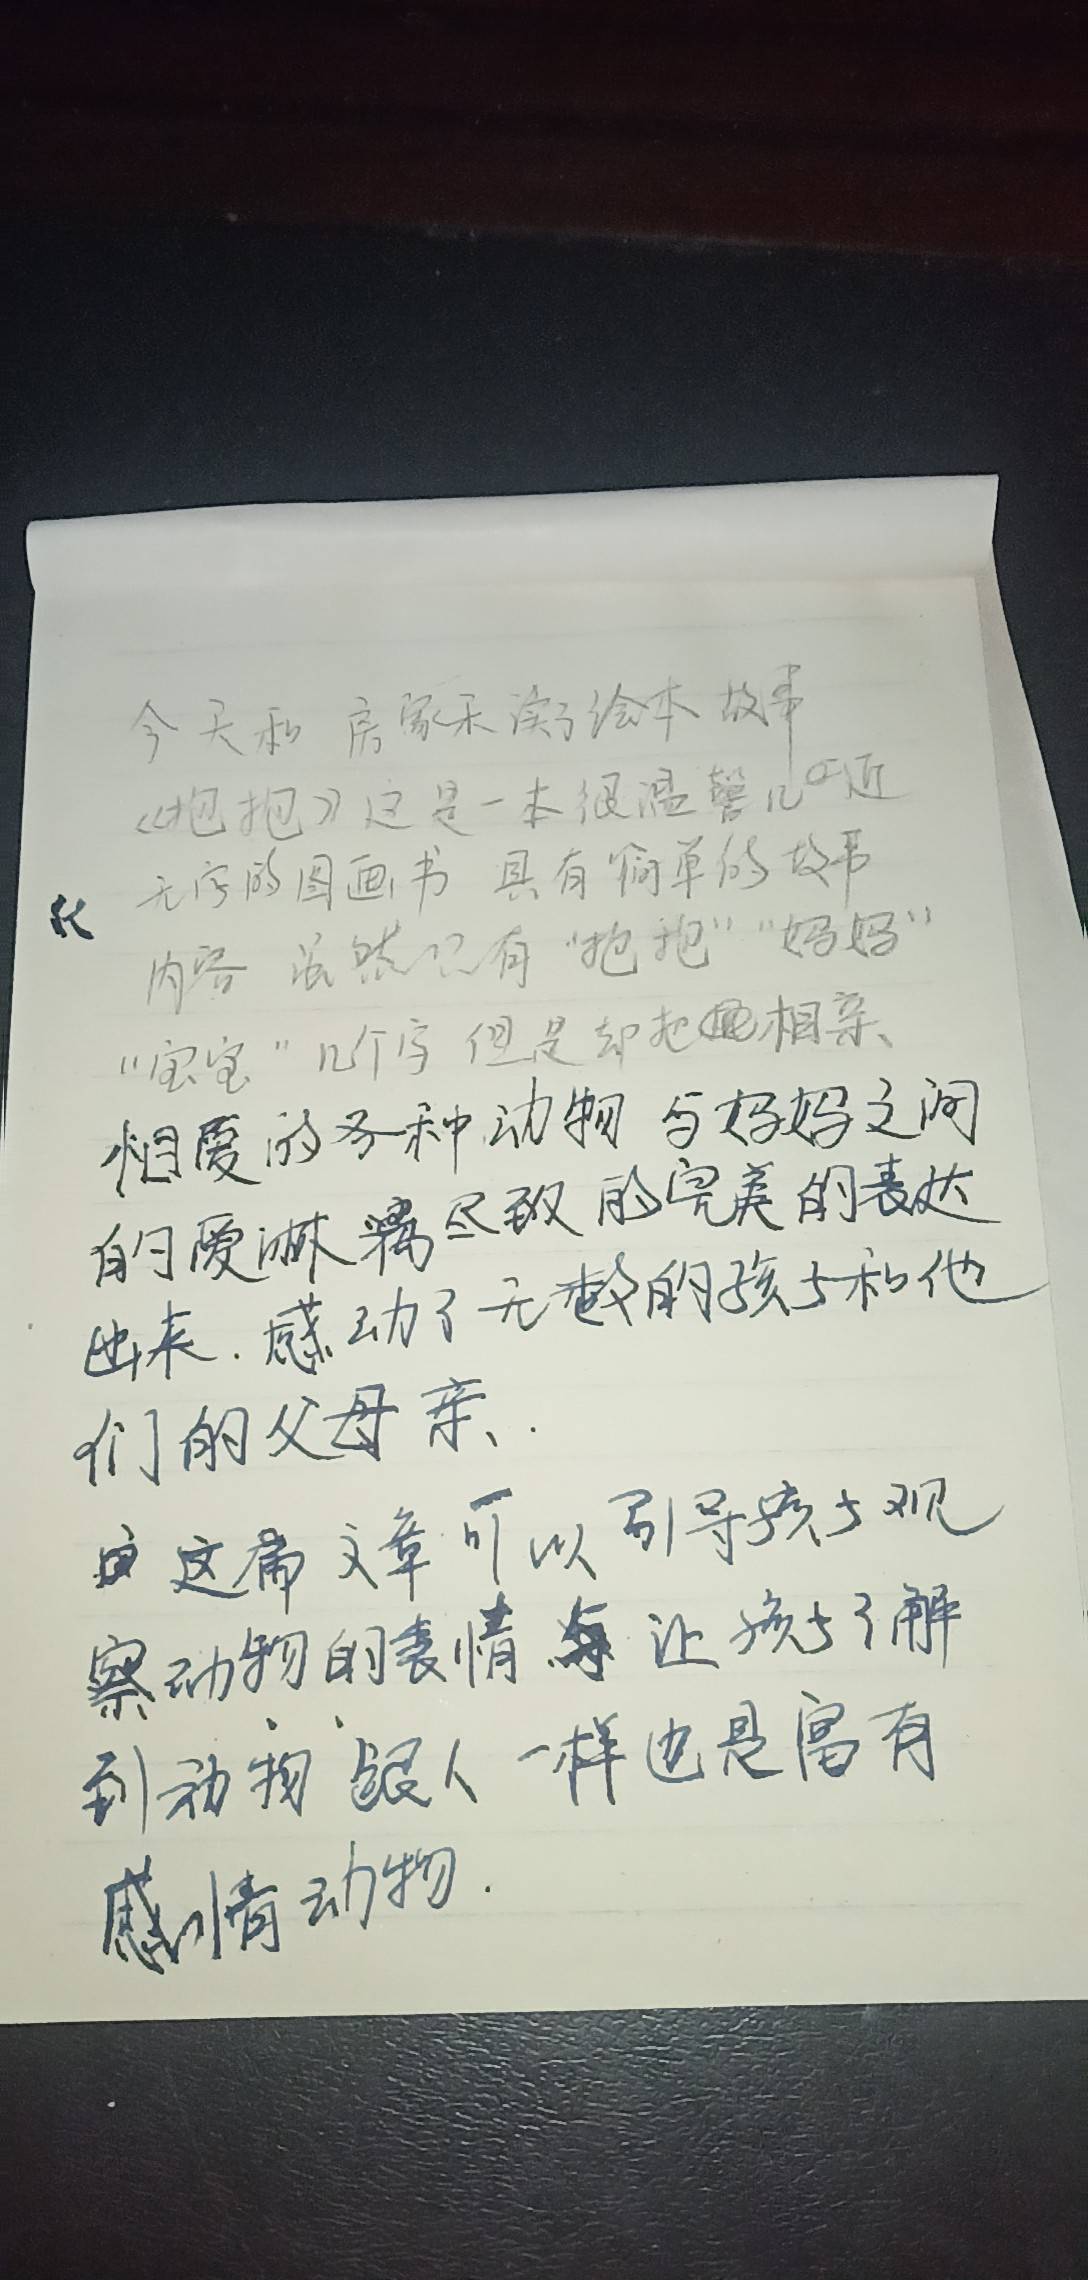 今天和房家禾读了绘本故事
《抱抱》这是一本很温馨几乎近
无字的图画书 具有简单的故事
内容 虽然只有“抱抱”“妈妈”
“宝宝”几个字 但是却把相亲
相爱的各种动物与妈妈之间
的爱淋漓尽致的完美的表达
出来.感动了无数的孩子和他
们的父母亲.
这篇文章可以引导孩子观
察动物的表情 让孩子了解
到动物跟人一样也是富有
感情动物.